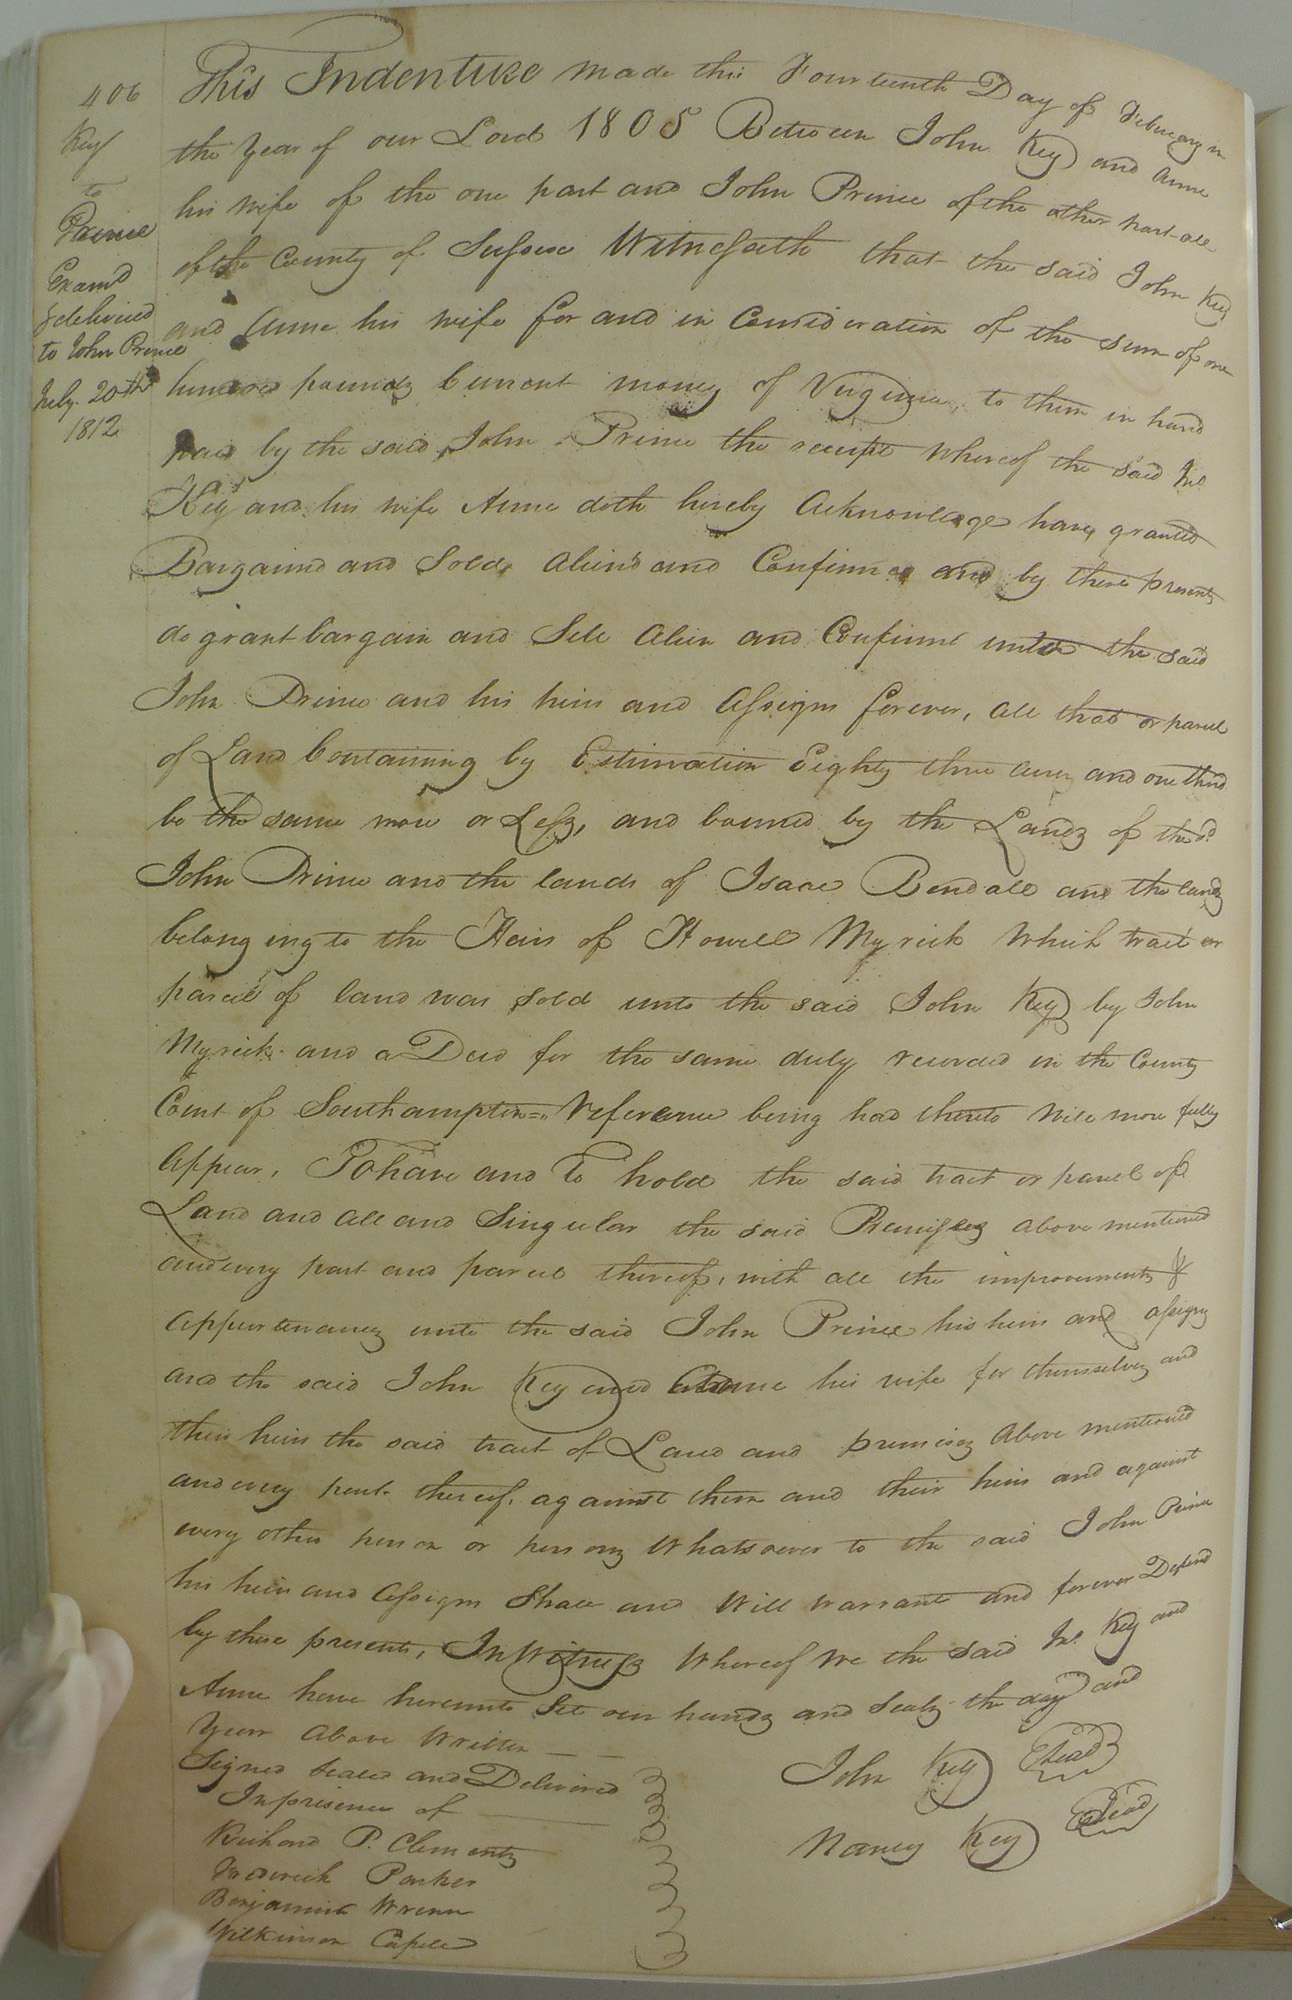 406
Key
to
Prince
Examd
& delivered
to John Prince
July 20th
1812
This Indenture made this Fourteenth Day of February in
the year of our Lord 1805 Between John Key and Anne
his wife of the one part and John Prince of the other part all
of the County of Sussex Witnesseth that the said John Key
and Anne his wife for and in Consideration of the sum of one
hundred pounds Current money of Virginia, to them in hand
paid by the said John Prince the receipt whereof the said Jno.
Key and his wife Anne doth hereby Acknowledge have granted
Bargaind and Sold Aliend and Confirmed and by these presents
do grant bargain and Sell Alien and Confirm unto the said
John Prince and his heirs and Assigns forever, all that or parcel
of Land Containing by Estimation Eighty three acres and one third
be the same more or Less, and bound by the Lands of the sd.
John Prince and the lands of Isaac Bendall and the lands
belonging to the Heirs of Howell Myrick Which tract or
parcel of land was sold unto the said John Key by John
Myrick and a Deed for the same duly recorded in the County
Court of Southampton = Reference being had thereto Will more fully
Appear, To have and To hold the said tract or parcel of
Land and all and Singular the said Premisses above mentioned
and every part and parcel thereof, with all the improvements &
Appurtenances unto the said John Prince his heirs and assigns
and the said John Key and Anne his wife for themselves and
their heirs the said tract of Land and premises Above mentioned
and every part thereof, against them and their heirs and against
every other person or persons Whatsoever to the said John Prince
his heirs and Assigns Shall and Will Warrant and forever Defend
by these presents, In Witness Whereof We the said Jno. Key and
Anne have hereunto Set our hands and Seals the day and
Year Above Written
Signed Sealed and Delivered
In presence of
John Key Seal
Richard P. Clements
Nancy Key Seal
Frederick Parker
Benjamin Wrenn
Wilkinson Capell